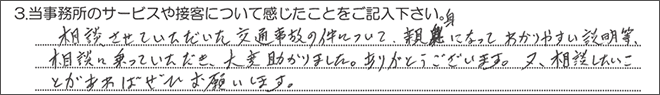 3.当事務所のサービスや接客について感じたことをご記入下さい。
相談させていただいた交通事故の件について、親身になってわかりやすい説明等、
相談に乗っていただき、大変助かりました。ありがとうございます。又、相談したいこ
とがあればぜひお願いします。